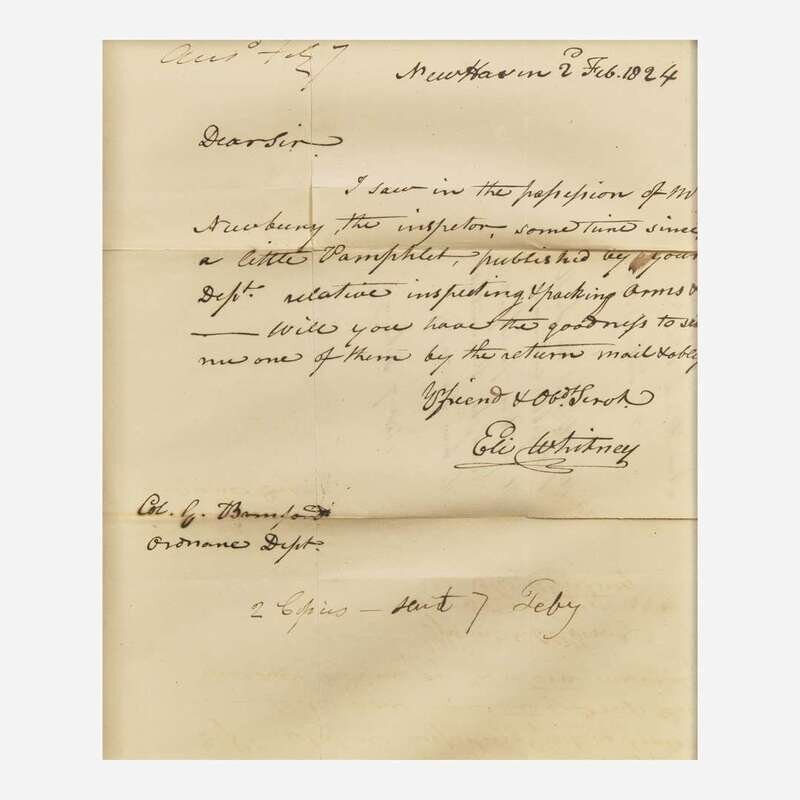 Ansd Feby 7
New Haven 2d Feb. 1824
Dear Sir
I saw in the possession of M
Newbury, the inspetor, some time since,
a little Pamphlet, published by your
Dept. relative inspecting & packing Arms &
— Will you have the goodness to se
me one of them by the return mail & oblig
Yr friend & Obdt. Servt.
Eli Whitney
Col. G. Bomford
Ordnane Dept.
2 Copies — sent 7 Feby